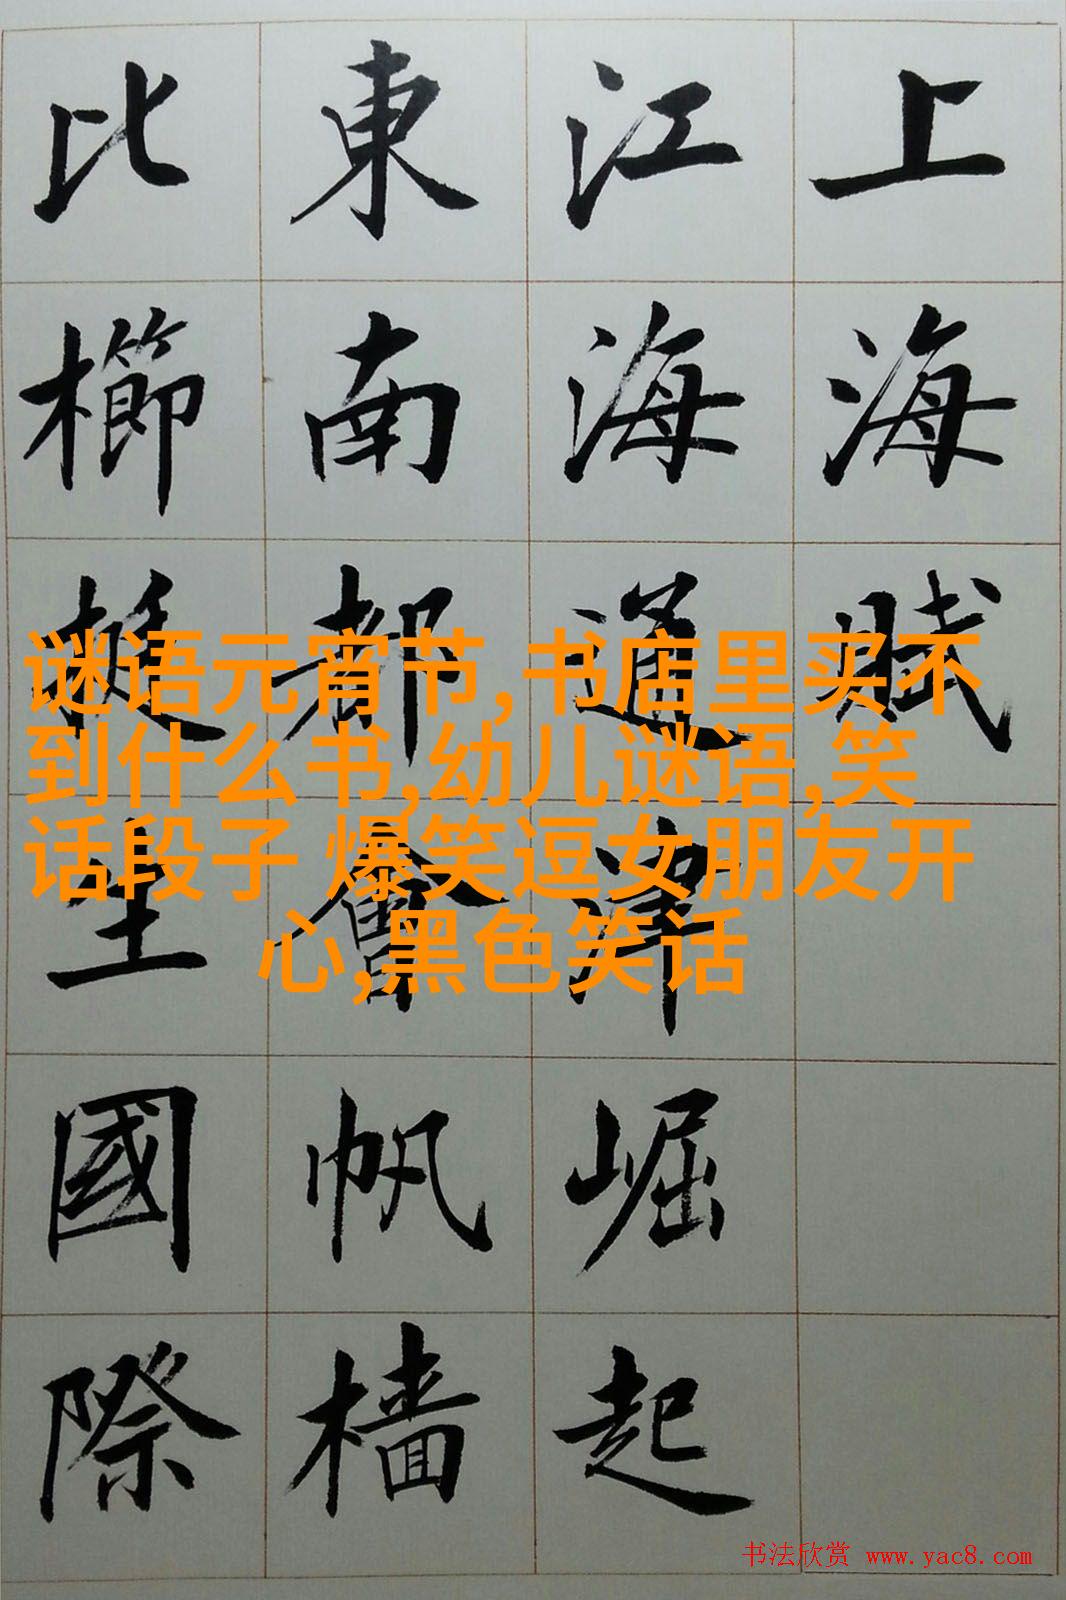 上海賦
江海通津崛起
東南都會帆檣
比櫛挺生國際
谜语元宵节,书店里买不
到什么书,幼儿谜语,笑
话段子 爆笑逗女朋友开
心,黑色笑话
书法欣赏 www.yac8.com